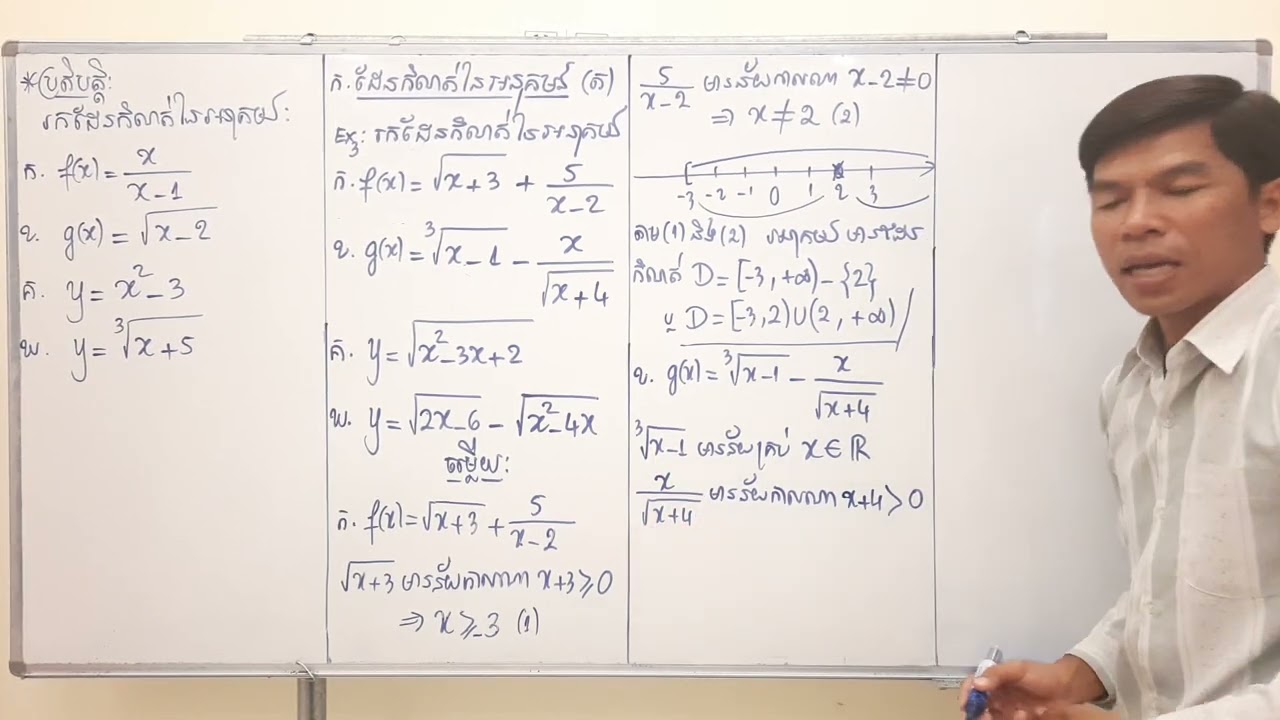 *ប្រតិបត្តិ:
រកដែនកំណត់នៃអនុគមន៍:
ក. f(x) = x/(x-1)
ខ. g(x) = √(x-2)
គ. y = x²-3
ឃ. y = ³√(x+5)
ក. ដែនកំណត់នៃអនុគមន៍ (ត)
Ex₃: រកដែនកំណត់នៃអនុគមន៍
ក. f(x) = √(x+3) + 5/(x-2)
ខ. g(x) = ³√(x-1) - x/√(x+4)
គ. y = √(x²-3x+2)
ឃ. y = √(2x-6) - √(x²-4x)
ចម្លើយ:
ក. f(x) = √(x+3) + 5/(x-2)
√(x+3) មានន័យកាលណា x+3 ⩾ 0
⇒ x ⩾ -3 (1)
5/(x-2) មានន័យកាលណា x-2 ≠ 0
⇒ x ≠ 2 (2)
-3 -2 -1 0 1 2 3
តាម (1) និង (2) អនុគមន៍មានដែន
កំណត់ D = [-3, +∞) - {2}
ឬ D = [-3, 2) ∪ (2, +∞)
ខ. g(x) = ³√(x-1) - x/√(x+4)
³√(x-1) មានន័យគ្រប់ x ∈ ℝ
x/√(x+4) មានន័យកាលណា x+4 > 0